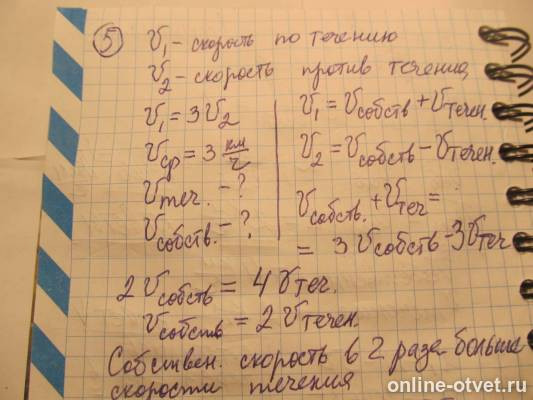 ⑤ V₁ - скорость по течению
V₂ - скорость против течения
V₁ = 3V₂
Vср = 3 км/ч
Vтеч. - ?
Vсобств. - ?
V₁ = Vсобств + Vтечен.
V₂ = Vсобств - Vтечен.
Vсобств. + Vтеч =
= 3Vсобств - 3Vтеч
2Vсобств = 4Vтеч.
Vсобств = 2Vтечен.
Собствен. скорость в 2 раза больше
скорости течения
online-otvet.ru